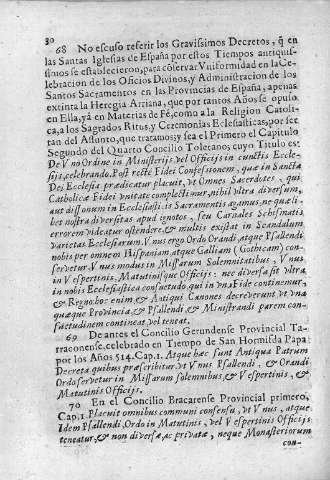 80
68 No escuso referir los Gravissimos Decretos, q̃ en
las Santas Iglesias de España por estos Tiempos antiquis-
simos se establecieron, para cõservar Vniformidad en la Ce-
lebracion de los Oficios Divinos, y Administracion de los
Santos Sacramentos en las Provincias de España, apenas
extinta la Heregia Arriana, que por tantos Años se opuso
en Ella, yà en Materias de Fé, como a la Religion Catoli-
ca, a los Sagrados Ritus, y Ceremonias Eclesiasticas, por ser
tan del Assunto, que tratamos; sea el Primero el Capitulo
Segundo del Quarto Concilio Toletano, cuyo Titulo es:
De Vno Ordine in Ministerijs, vel Officijs in cunctis Eccle-
sijs, celebrando. Post rectæ Fidei Confessionem, quæ in Sancta
Dei Ecclesia prædicatur placuit, vt Omnes Sacerdotes, qui
Catholicæ Fidei vnitate complectimur, nihil vltra diversum,
aut dissonum in Ecclesiasticis Sacramentis agamus, ne quæli-
bet nostra diversitas apud ignotos, seu Carnales Schismatis
errorem videatur ostendere, & multis existat in Scandalum
varietas Ecclesiarum. Vnus ergo Ordo Orandi, atque Psallendi
nobis per omnem Hispaniam, atque Galliam (Gothicam) con-
servetur. Vnus modus in Missarum Solemnitatibus, Vnus
in Vespertinis, Matutinisque Officijs: nec diversa sit vltra
in nobis Ecclesiastica consuetudo, qui in vna Fide continemur,
& Regno: hoc enim & Antiqui Canones decreverunt vt vna
quæque Provincia, & Psallendi, & Ministrandi parem con-
suetudinem contineat, vel teneat.
69 De antes el Concilio Gerundense Provincial Ta-
rraconense, celebrado en Tiempo de San Hormisda Papa
por los Años 514. Cap. 1. Atque hæc sunt Antiqua Patrum
Decreta quibus præscribitur, vt Vnus Psallendi, & Orandi
Ordo servetur in Missarum solemnibus, & Vespertinis, &
Matutinis Officijs.
70 En el Concilio Bracarense Provincial primero,
Cap. 1. Placuit omnibus communi consensu, vt Vnus, atque
Idem Psallendi, Ordo in Matutinis, vel Vespertinis Officijs
teneatur, & non diversæ, ac privatæ, neque Monasteriorum
con-